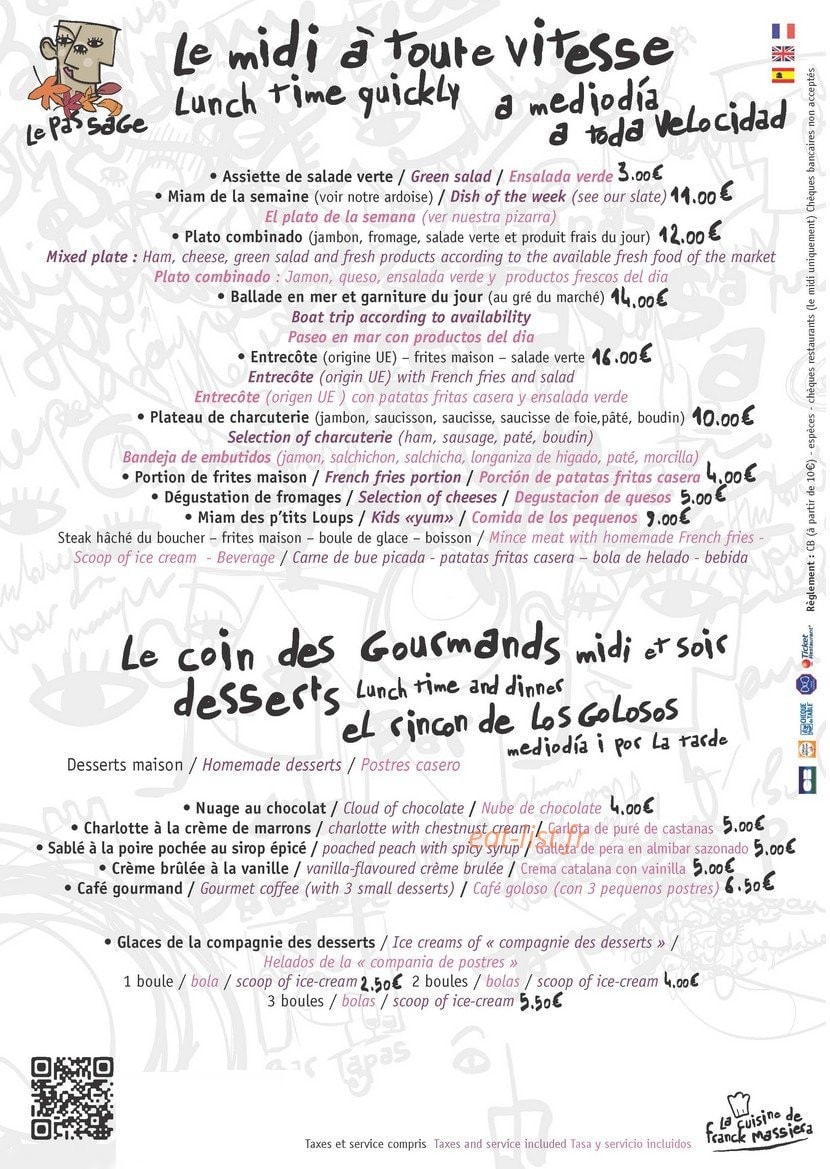 Le passage
Le midi à toute vitesse
Lunch time quickly a mediodía
a toda velocidad
• Assiette de salade verte / Green salad / Ensalada verde 3.00€
• Miam de la semaine (voir notre ardoise) / Dish of the week (see our slate) 11.00€
El plato de la semana (ver nuestra pizarra)
• Plato combinado (jambon, fromage, salade verte et produit frais du jour) 12.00€
Mixed plate : Ham, cheese, green salad and fresh products according to the available fresh food of the market
Plato combinado : Jamon, queso, ensalada verde y productos frescos del dia
• Ballade en mer et garniture du jour (au gré du marché) 14.00€
Boat trip according to availability
Paseo en mar con productos del dia
• Entrecôte (origine UE) – frites maison – salade verte 16.00€
Entrecôte (origin UE) with French fries and salad
Entrecôte (origen UE ) con patatas fritas casera y ensalada verde
• Plateau de charcuterie (jambon, saucisson, saucisse, saucisse de foie,pâté, boudin) 10.00€
Selection of charcuterie (ham, sausage, paté, boudin)
Bandeja de embutidos (jamon, salchichon, salchicha, longaniza de higado, paté, morcilla)
• Portion de frites maison / French fries portion / Porción de patatas fritas casera 4.00€
• Dégustation de fromages / Selection of cheeses / Degustacion de quesos 5.00€
• Miam des p'tits Loups / Kids «yum» / Comida de los pequenos 9.00€
Steak hâché du boucher – frites maison – boule de glace – boisson / Mince meat with homemade French fries -
Scoop of ice cream - Beverage / Carne de bue picada - patatas fritas casera – bola de helado - bebida
Le coin des Gourmands midi et soir
desserts Lunch time and dinner
el rincon de los Golosos
mediodía i por la tarde
Desserts maison / Homemade desserts / Postres casero
• Nuage au chocolat / Cloud of chocolate / Nube de chocolate 4.00€
• Charlotte à la crème de marrons / charlotte with chestnust cream / Carlota de puré de castanas 5.00€
eat-list.fr
• Sablé à la poire pochée au sirop épicé / poached peach with spicy syrup / Galleta de pera en almibar sazonado 5.00€
• Crème brûlée à la vanille / vanilla-flavoured crème brulée / Crema catalana con vainilla 5.00€
• Café gourmand / Gourmet coffee (with 3 small desserts) / Café goloso (con 3 pequenos postres) 6.50€
• Glaces de la compagnie des desserts / Ice creams of « compagnie des desserts » /
Helados de la « compania de postres »
1 boule / bola / scoop of ice-cream 2.50€ 2 boules / bolas / scoop of ice-cream 4.00€
3 boules / bolas / scoop of ice-cream 5.50€
Règlement : CB (à partir de 10€) - espèces - chèques restaurants (le midi uniquement) Chèques bancaires non acceptés
Ticket Restaurant
CHÈQUE de TABLE
CB
Bar Tapas
La cuisine de
Franck Massiera
Taxes et service compris Taxes and service included Tasa y servicio incluidos